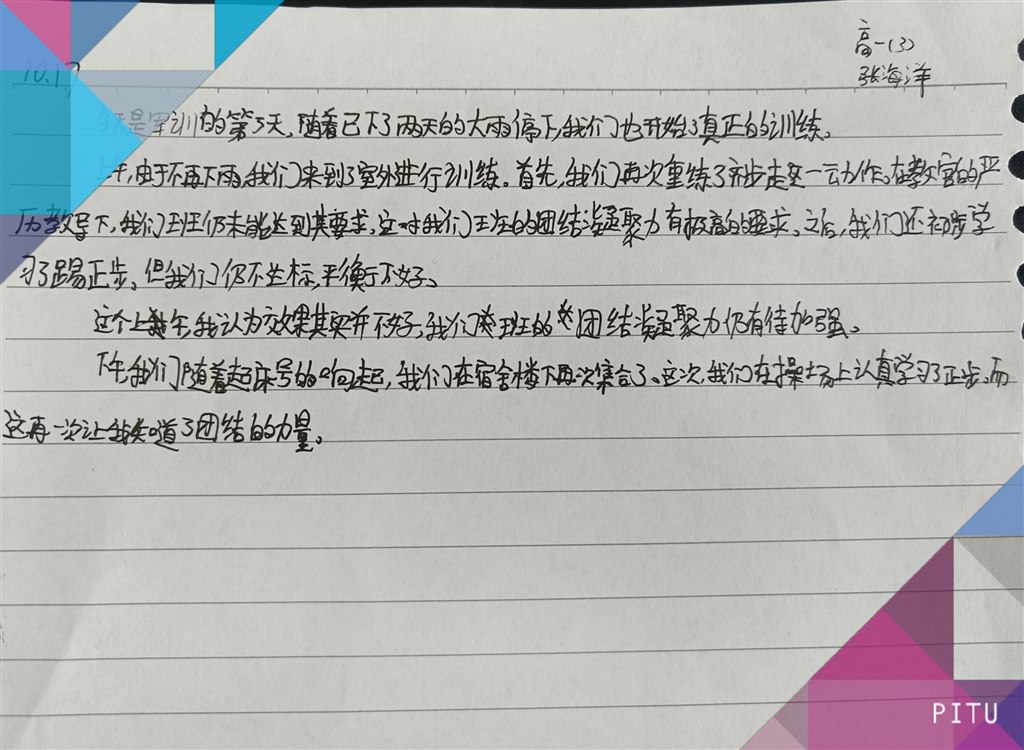 高一(3)
张海洋
10.17
今天是军训的第5天,随着已下了两天的大雨停下,我们也开始了真正的训练。
上午,由于不再下雨,我们来到了室外进行训练。首先,我们再次重练了齐步走这一动作。在教官的严
厉教导下,我们班仍未能达到其要求,这对我们班的团结凝聚力有极高的要求。之后,我们还初步学
习了踢正步,但我们仍不达标,平衡不好。
这个上午,我认为效果其实并不好,我们班的团结凝聚力仍有待加强。
下午,我们随着起床号的响起,我们在宿舍楼下再次集合了。这次,我们在操场上认真学习了正步,而
这再一次让我知道了团结的力量。
PITU